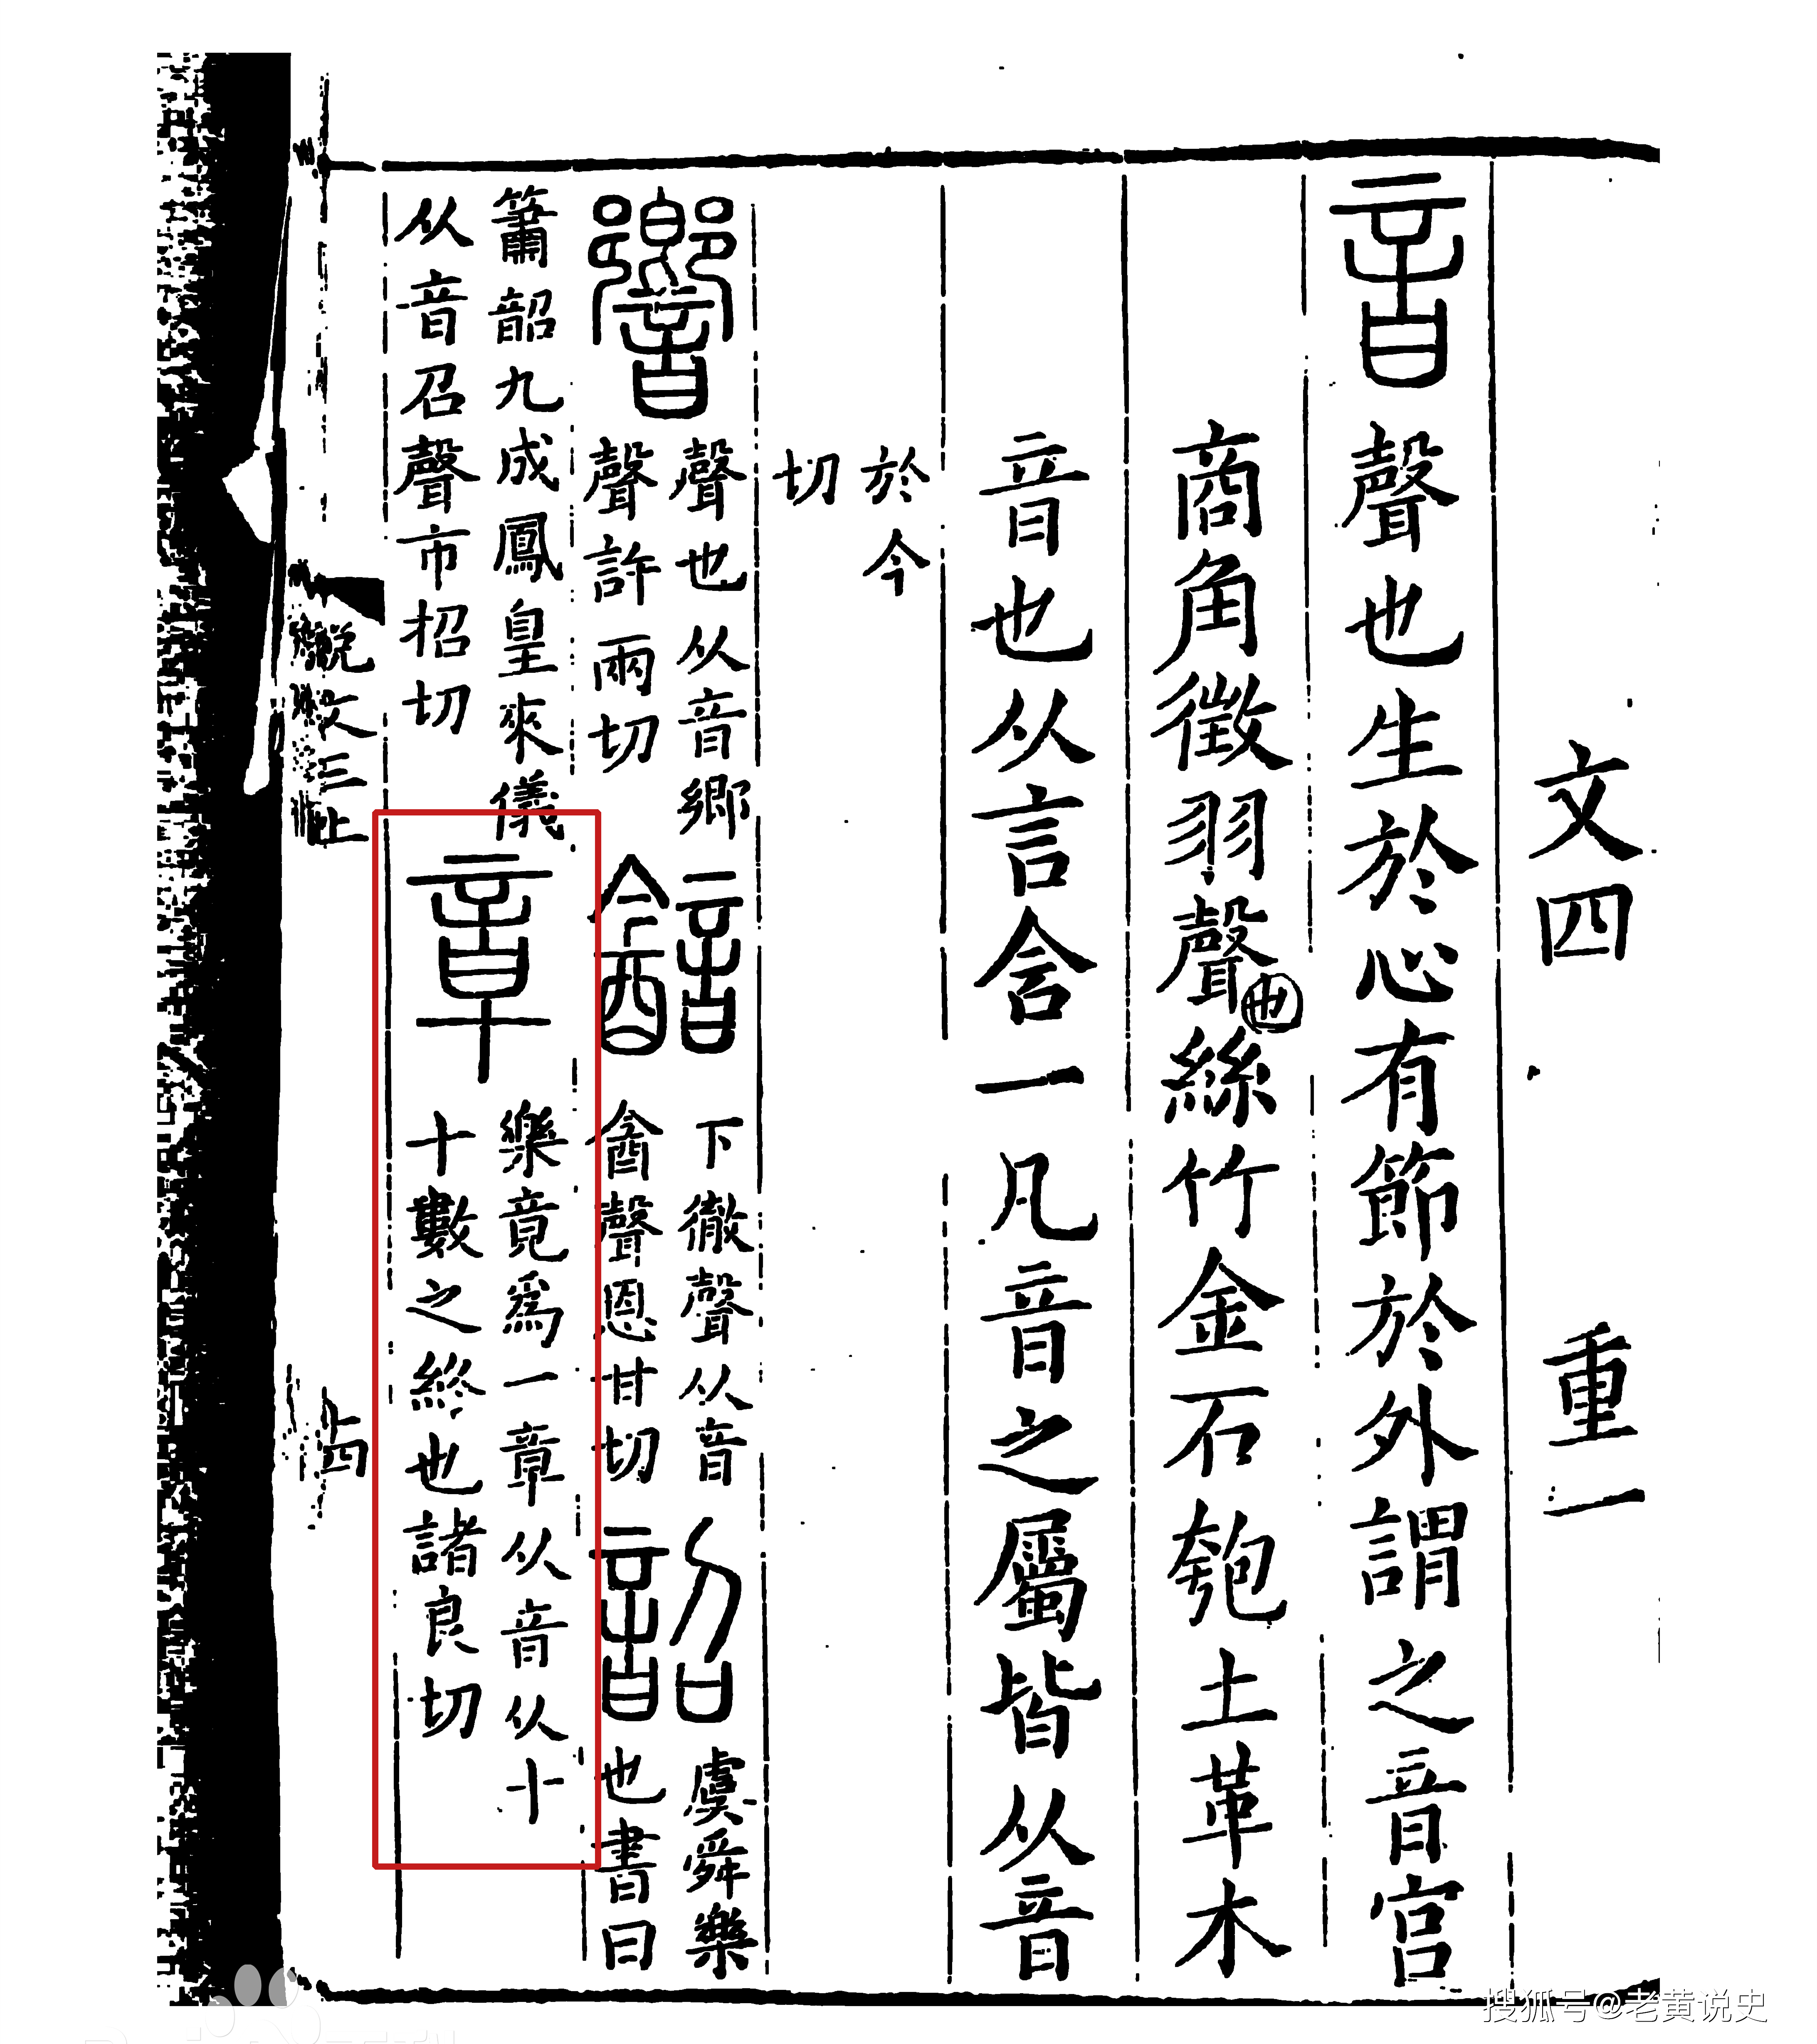 文四　重一
音　聲也生於心有節於外謂之音宮
商角徵羽聲也絲竹金石匏土革木
音也从言含一凡音之屬皆从音
於今
切
響
聲也从音鄉
聲許兩切
韽
下徹聲从音
酓聲恩甘切
韶
虞舜樂
也書曰
簫韶九成鳳皇來儀
从音召聲市招切
章
樂竟爲一章从音从十
十數之終也諸良切
說文三上
四
搜狐号@老黄说史